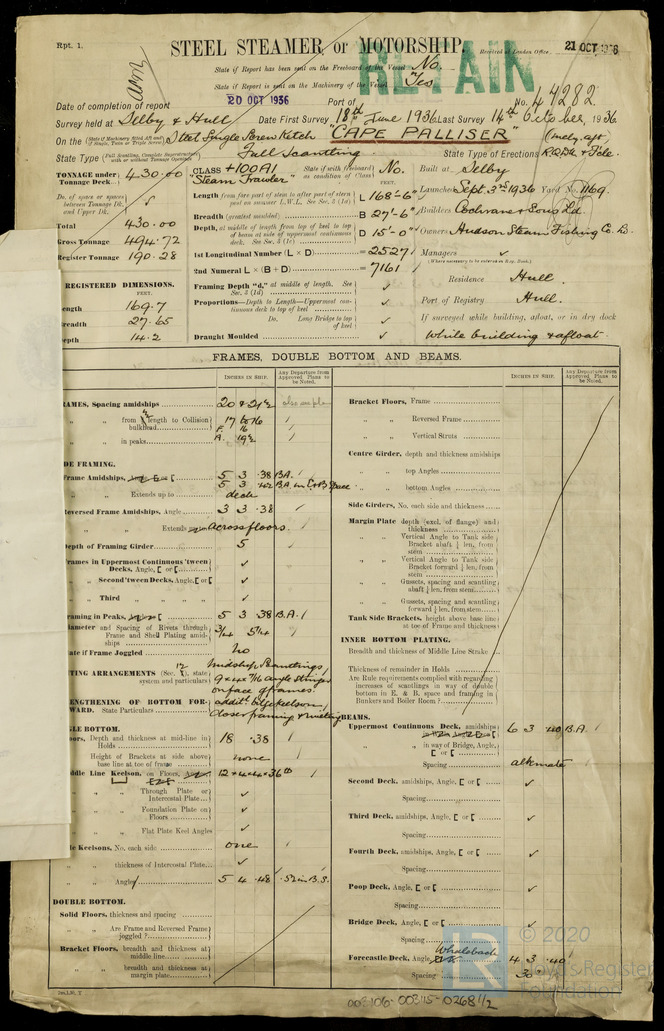 Rpt. 1.
STEEL STEAMER or MOTORSHIP.
Received at London Office
21 OCT 1936
RETAIN
State if Report has been sent on the Freeboard of the Vessel No.
State if Report is sent on the Machinery of the Vessel Yes
20 OCT 1936
Date of completion of report
Port of
No. 44282
Survey held at Selby & Hull
Date First Survey 18th June 1936
Last Survey 14th October, 1936
On the Steel Single Screw Ketch
"CAPE PALLISER"
(mchy. aft)
State Type Full Scantling
State Type of Erections R.Q.Dk & Fcle.
TONNAGE under Tonnage Deck 430.00
CLASS +100A1 "Steam Trawler"
State if with freeboard as condition of Class No.
Built at Selby
Launched Sept. 3rd 1936 Yard No. 1169
Do. of space or spaces between Tonnage Dk. and Upper Dk. ✓
Length from fore part of stem to after part of stern post on summer L.W.L. See Sec. 3 (1a) L 168'-6"
Breadth (greatest moulded) B 27'-6"
Builders Cochrane & Sons Ld.
Total 430.00
Depth, at middle of length from top of keel to top of beam at side of uppermost continuous deck. See Sec. 3 (1c) D 15'-0"
Owners Hudson Steam Fishing Co. Ld.
Gross Tonnage 494.72
1st Longitudinal Number (L × D) = 2527
Managers ✓
(Where necessary to be entered in Reg. Book.)
Register Tonnage 190.28
2nd Numeral L × (B + D) = 7161
Residence Hull.
REGISTERED DIMENSIONS.
FEET.
Framing Depth "d," at middle of length. See Sec. 3 (1d) ✓
Port of Registry Hull.
ength 169.7
Proportions—Depth to Length—Uppermost continuous deck to top of keel ✓
Do. Long Bridge to top of keel ✓
If surveyed while building, afloat, or in dry dock
readth 27.65
epth 14.2
Draught Moulded ✓
While building & afloat
FRAMES, DOUBLE BOTTOM AND BEAMS.
INCHES IN SHIP.
Any Departure from Approved Plans to be Noted.
INCHES IN SHIP.
Any Departure from Approved Plans to be Noted.
RAMES, Spacing amidships 20 & 21½
" " from length to Collision bulkhead 17 to 16
" " in peaks F. 16 A. 19½
DE FRAMING.
Frame Amidships, 5 3 .38 B.A.
5 3 .42 B.A. in
" " Extends up to deck
eversed Frame Amidships, Angle 3 3 .38
" " Extends across floors.
epth of Framing Girder 5
rames in Uppermost Continuous 'tween Decks, Angle, [ or [ ✓
" " Second 'tween Decks, Angle, [ or [ ✓
" " Third " " " " ✓
raming in Peaks, 5 3 .38 B.A.
iameter and Spacing of Rivets through Frame and Shell Plating amidships 3/4 5¼
ate if Frame Joggled no
TING ARRANGEMENTS (Sec. ), state system and particulars Midship Scantlings,
on face of frames.
ENGTHENING OF BOTTOM FORWARD. State Particulars addit. bilge keelson,
close framing & riveting
GLE BOTTOM.
oors, Depth and thickness at mid-line in Holds 18 .38
Height of Brackets at side above base line at toe of frame none
ddle Line Keelson, on Floors, 12 × 4 × 4 × .36
" " Through Plate or Intercostal Plate ✓
" " Foundation Plate on Floors ✓
" " Flat Plate Keel Angles ✓
de Keelsons, No. each side one
" " thickness of Intercostal Plate ✓
" " Angles 5 4 .48 .52 in B.S.
DOUBLE BOTTOM.
Solid Floors, thickness and spacing
" " Are Frame and Reversed Frame joggled?
Bracket Floors, breadth and thickness at middle line
" " breadth and thickness at margin plate
Bracket Floors, Frame
" " Reversed Frame
" " Vertical Struts
Centre Girder, depth and thickness amidships
" " top Angles
" " bottom Angles
Side Girders, No. each side and thickness
Margin Plate depth (excl. of flange) and thickness
" " Vertical Angle to Tank side Bracket abaft ¼ len. from stem
" " Vertical Angle to Tank side Bracket forward ¼ len. from stem
" " Gussets, spacing and scantling abaft ¼ len. from stem
" " Gussets, spacing and scantling forward ¼ len. from stem
Tank Side Brackets, height above base line at toe of Frame and thickness
INNER BOTTOM PLATING.
Breadth and thickness of Middle Line Strake
Thickness of remainder in Holds
Are Rule requirements complied with regarding increases of scantlings in way of double bottom in E. & B. space and framing in Bunkers and Boiler Room?
BEAMS.
Uppermost Continuous Deck, amidships 6 3 .40 B.A.
" " in way of Bridge, Angle, [ or [
Spacing alternate
Second Deck, amidships, Angle, [ or [ ✓
Spacing
Third Deck, amidships, Angle, [ or [ ✓
Spacing
Fourth Deck, amidships, Angle, [ or [ ✓
Spacing
Poop Deck, Angle, [ or [ ✓
Spacing
Bridge Deck, Angle, [ or [ ✓
Spacing
Whaleback
Forecastle Deck, Angle, 4 3 .40
Spacing 30
© 2020
Lloyd's Register Foundation
003106-003115-0268 1/2